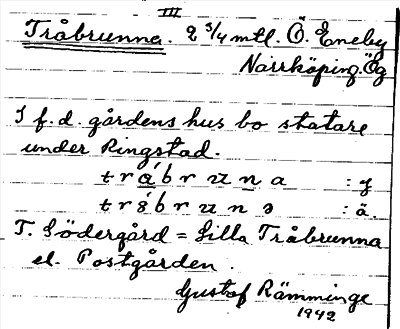 III
Tråbrunna. 2 3/4 mtl. Ö. Eneby
Norrköping. Ög
I f.d. gårdens hus bo statare
under Ringstad.
tråbruna :y
trǻbrunə :ä.
T. Södergård = Lilla Tråbrunna
el. Postgården.
Gustaf Rämminge
1942